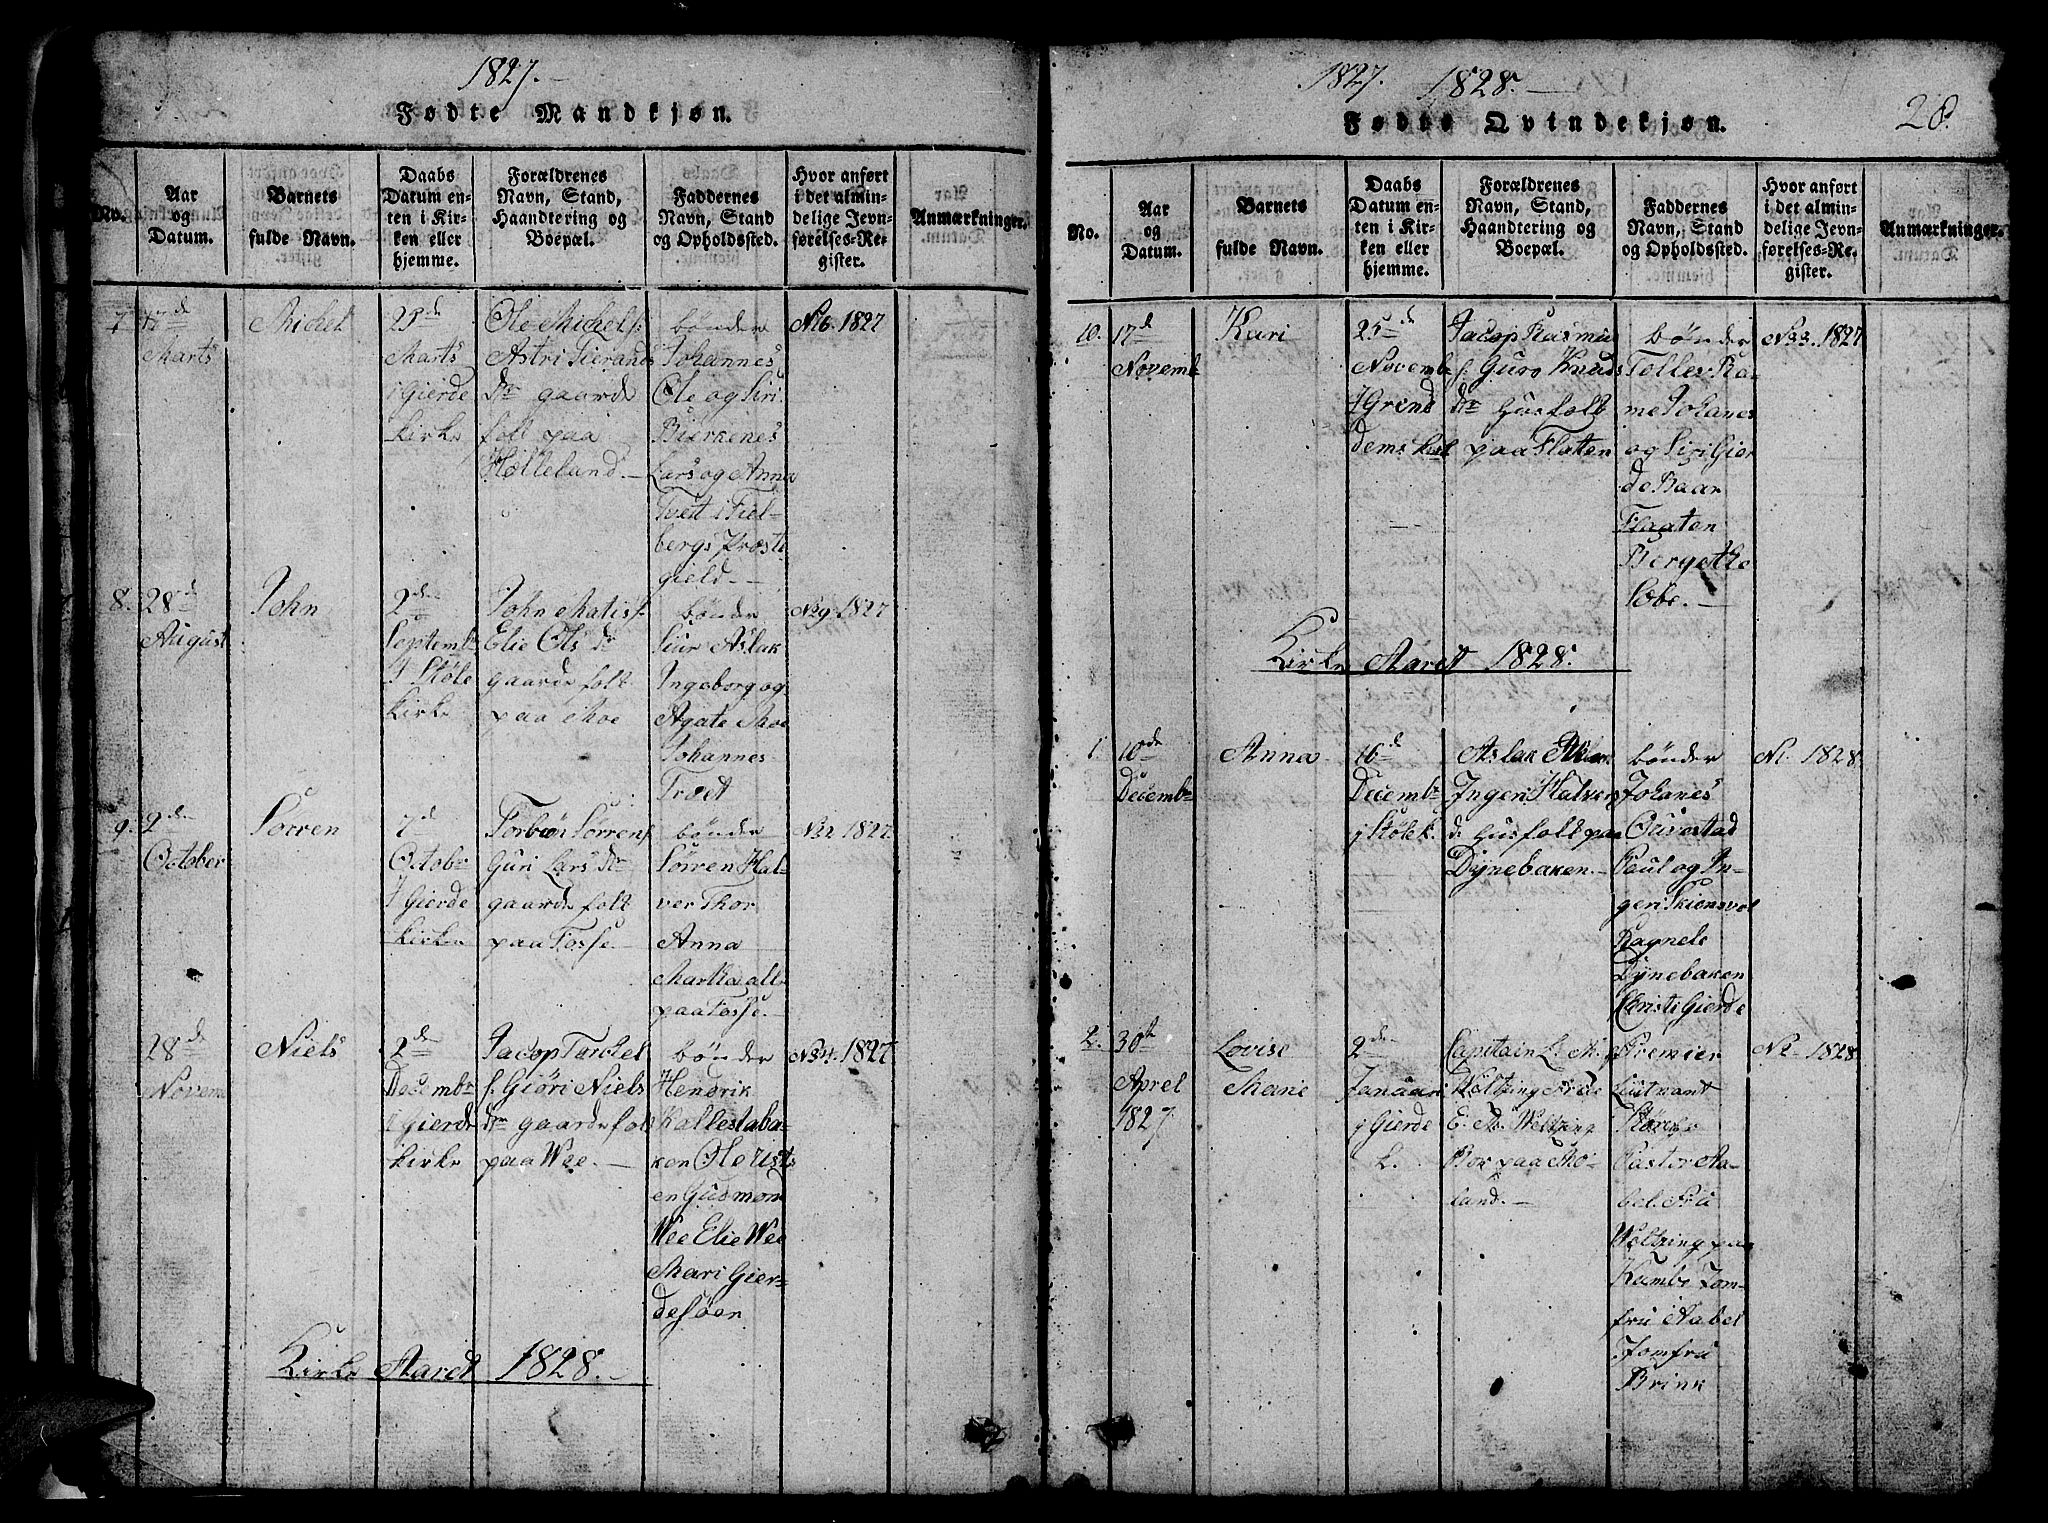 1827.
Fødte Mandkjøn.
No.
Aar
og
Datum.
Barnets
fulde Navn.
Daabs
Datum en-
ten i Kir-
ken eller
hjemme.
Forældrenes
Navn, Stand,
Haandtering og
Boepæl.
Faddernes
Navn, Stand
og Opholdssted.
Hvor anført
i det almin-
delige Jevn-
førelses-Re-
gister.
Anmærkninger.
7.
17de
Marts
Michel
25de
Marts
i Gierde
Kirke
Ole Michels
Astri Sierands
dr gaarde
folk paa
Hølleland.
bønder
Johannes
Ole og Siri
Bierkenes
Lars og Anna
Tvett i Fiel-
bergs Præste
gield.
N16. 1827
8.
28d
August
John
2de
Septembr
i Støle
Kirke
John Matiss.
Elie Ols dr
gaarde folk
paa Moe
bønder
Siur Aslak
Ingeborg og
Agate Moe
Johannes
Træt
N29. 1827
9.
2den
October
Sørren
7d
Octobr
i Gierde
Kirke
Torbiøn Sørrens.
Guri Lars dr
gaarde folk
paa Fosse
bønder
Sørren Hal-
ver Thor
Anna
Martha alle
paa Fosse.
1827
28de
Novem
Niels
2de
Decembr
i Gierde
Kirke
Jacop Torchel
s. Giøri Niels
dr gaarde folk
paa Wee.
bønder
Hendrik
Kallestaba-
ken Ole
en Gusmon
Wee Elie Wee
Mari Gier-
desøen
N34. 1827
Kirke Aaret 1828.
1827. 1828.
28.
Fødte Qvindekjøn.
No.
Aar
og
Datum.
Barnets
fulde Navn.
Daabs
Datum en-
ten i Kir-
ken eller
hjemme.
Forældrenes
Navn, Stand,
Haandtering og
Boepæl.
Faddernes
Navn, Stand
og Opholdssted.
Hvor anført
i det almin-
delige Jevn-
førelses-Re-
gister.
Anmærkninger.
10.
17d
Novemb
Kari
25de
Novemb
i Grind
dems Kirk
Jacop Rasmus
s. Guro Knuds
dr husfolk
paa Flaten
bønder
Tollev Ra-
me Johanes
og Siri Gier
de Baar
Flaaten
Bergethe
Løbe.
N33. 1827
Kirke Aaret 1828.
1.
10de
Decembr
Anna
16de
Decembr
i Støle K.
Aslak
Ingeri Halvers
dr husfolk paa
Dynebaken.
bønder
Johanes
Ousestad
Paul og In-
geri Skiensvol
Ragnele
Dynebaken
Christi Gierde
N1. 1828.
2.
30te
Aprel
1827.
Lovise
Marie
2de
Januar
i Gierde
K.
Capitain L. M.
Weltzing Frue
E. M. Weltzing
Boe paa Mo-
land.
Premier
Liutnant
Pastor Aa-
bel. Fru
Weltzing paa
Kambe Jom-
fru Aabel
Jomfru
Brink
N2 1828